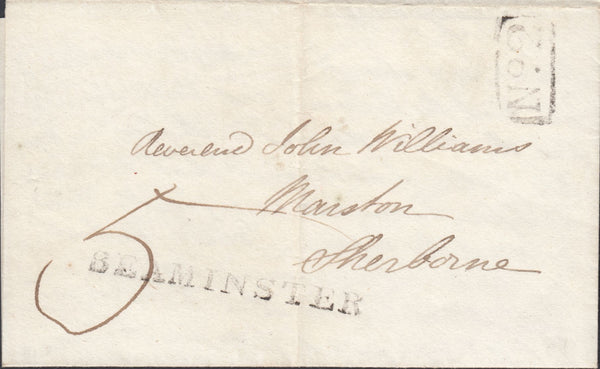 No. 2
Reverend John Williams
Marston
Sherborne
5
BEAMINSTER